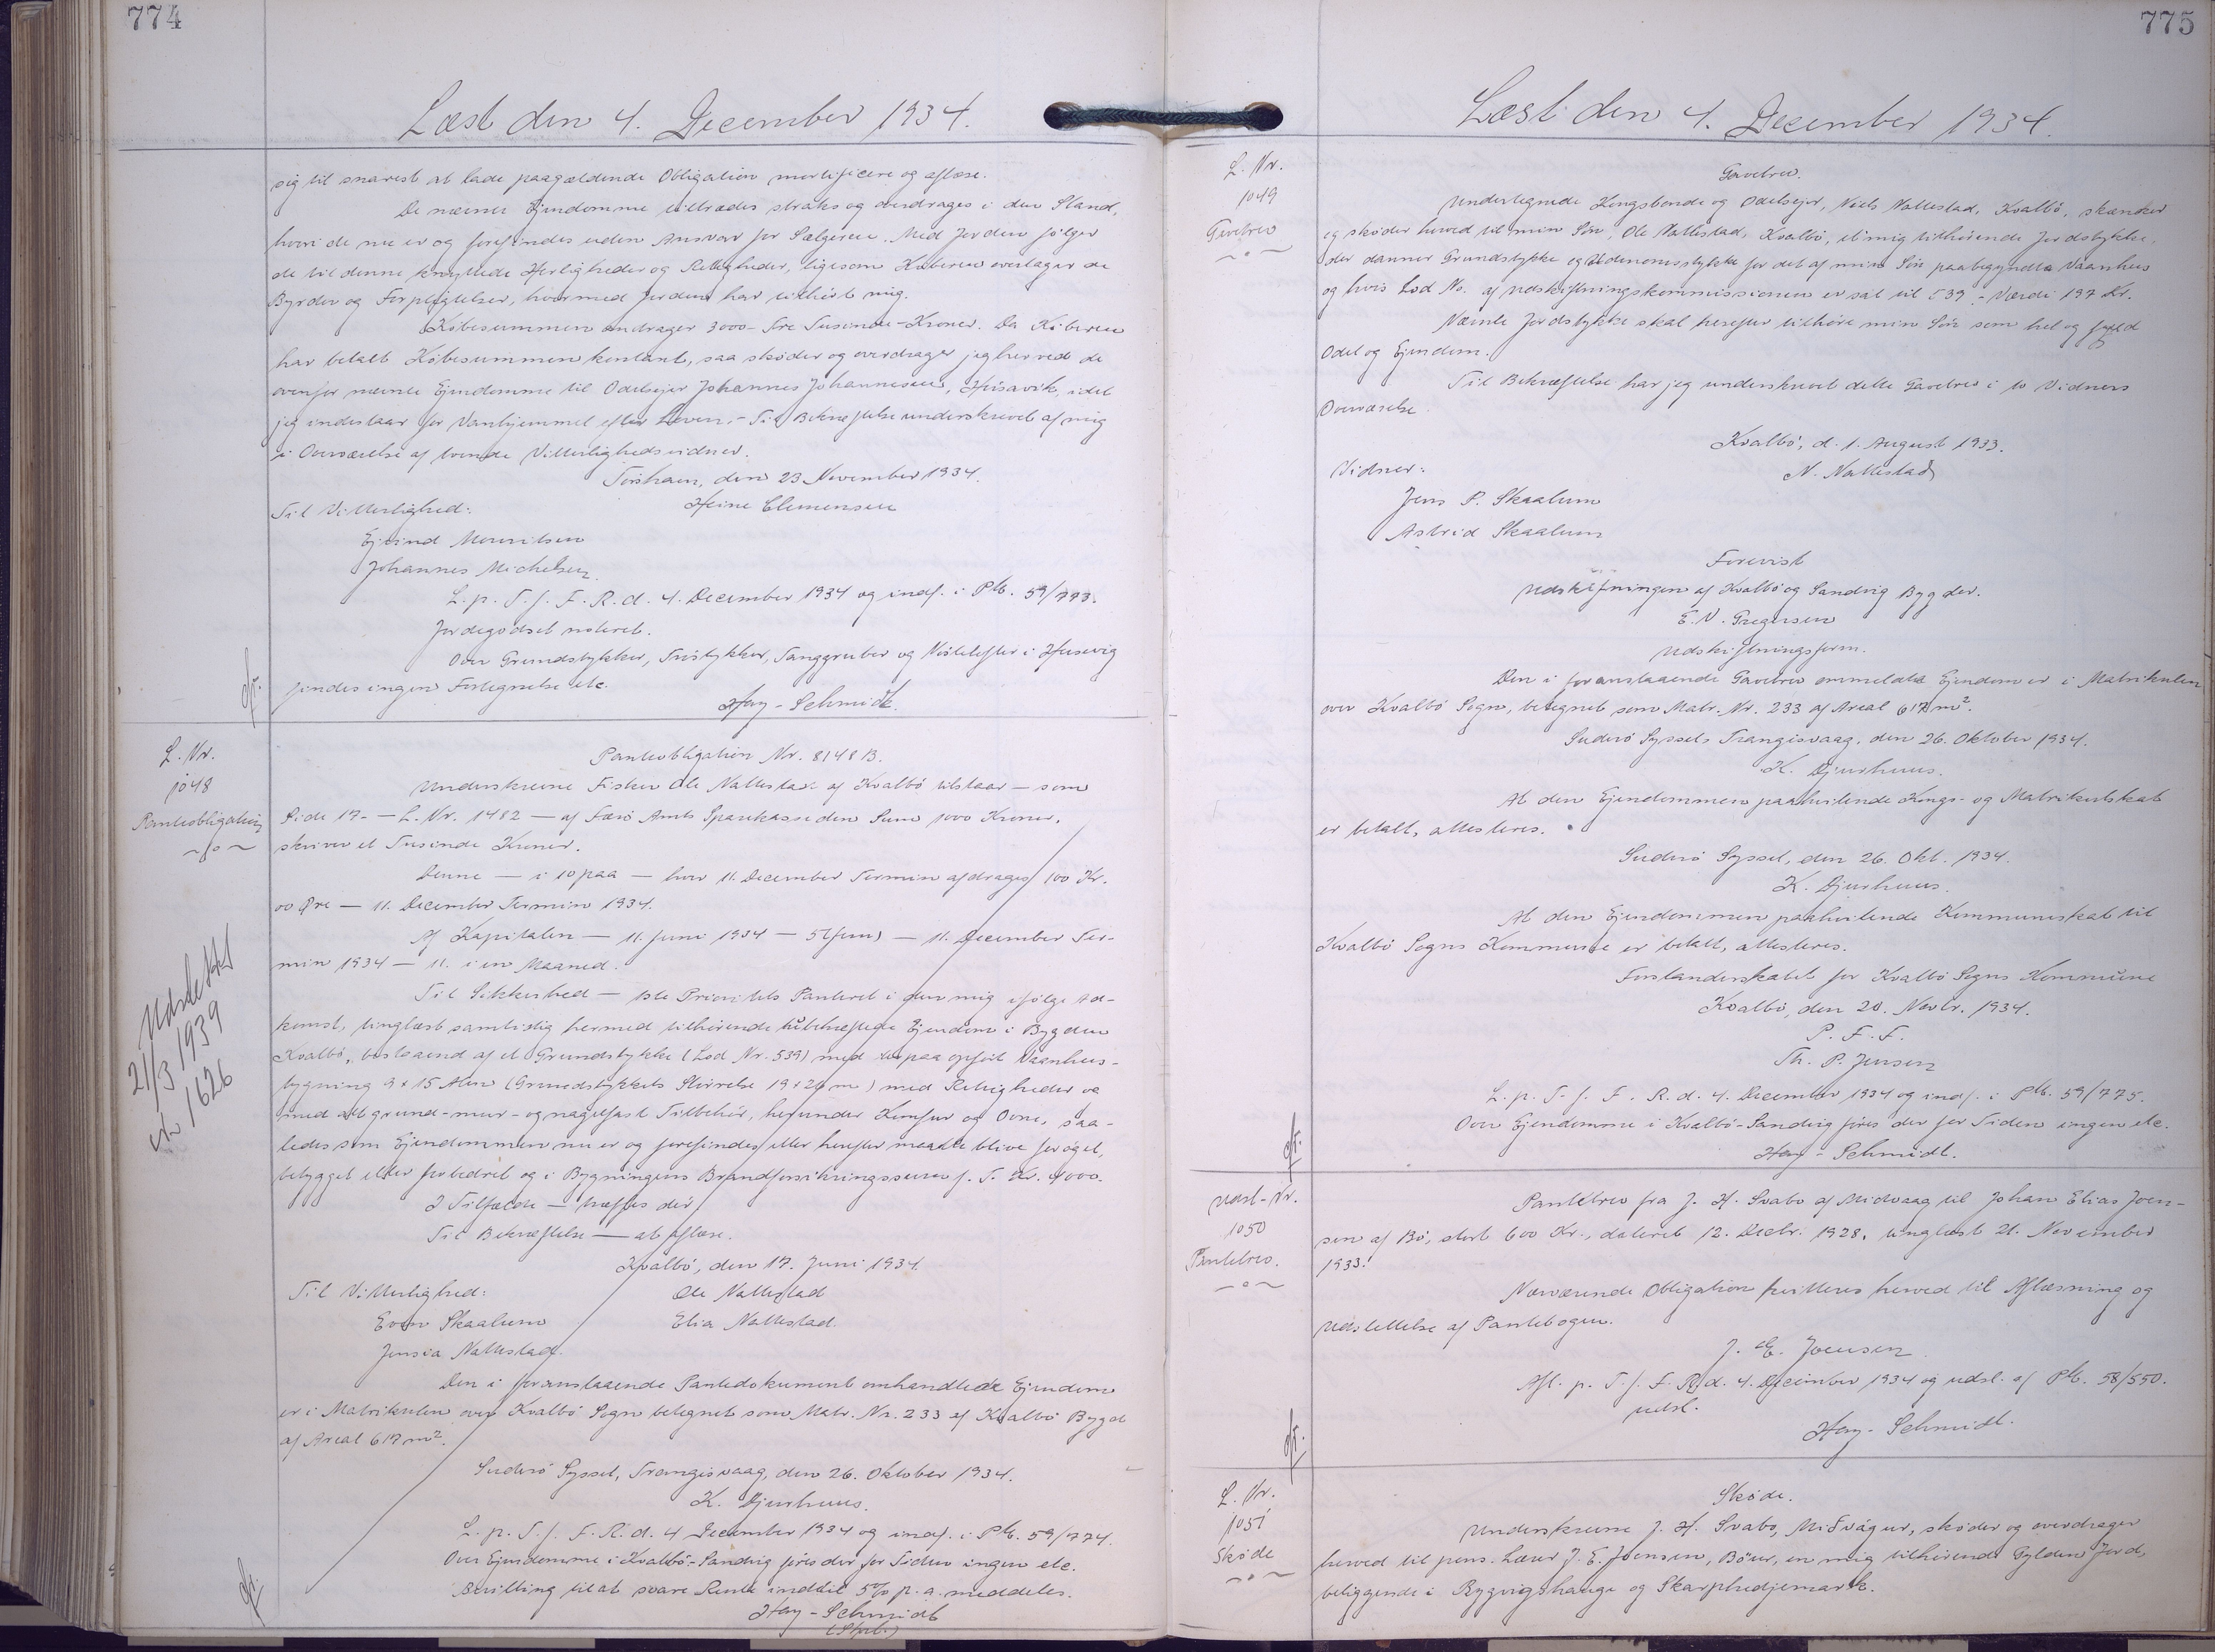 774
Læst den 4. December 1934.
sig til snarest at lade paagældende Obligation mortificere og aflæse.
De nævnte Ejendomme tiltrædes straks og overdrages i den Stand,
hvori de nu er og forefindes uden Ansvar for Sælgeren. Med Jorden følger
de til denne knyttede Herligheder og Rettigheder, ligesom Køberen overtager de
Byrder og Forpligtelser, hvormed Jorden har tilhørt mig.
Købesummen andrager 3000 - Tre Tusinde - Kroner. Da Køberen
har betalt Købesummen kontant, saa skøder og overdrager jeg herved de
ovenfor nævnte Ejendomme til Odelsejer Johannes Johannesen, Húsavik, idet
jeg indestaar for Vanhjemmel efter Loven. - Til Bekræftelse underskrevet af mig
i Overværelse af tvende Vitterlighedsvidner.
Tórshavn, den 23 November 1934.
Til Vitterlighed: Heine Clemensen
Ejvind Mouritsen
Johannes Michelsen
L. p. T. f. F. R. d. 4. December 1934 og indf. i Ptb. 59/773.
Jordegodset noteret.
Over Grundstykker, Tristykker, Tanggruber og i Husevig
findes ingen Fortegnelse etc.
Hay-Schmidt.
L. Nr.
1048
Panteobligation
Panteobligation Nr. 8148 B.
Underskrevne Fisker Ole Nattestad af Kvalbø tilstaar — som
Side 17 — L. Nr. 1482 — af Færø Amts Sparekasse den Sum 1000 Kroner,
skriver et Tusinde Kroner.
Denne — i 10 paa — hver 11. December Termin afdrages 100 Kr.
00 Øre — 11. December Termin 1934.
Af Kapitalen — 11. Juni 1934 — 5 (fem) — 11. December Ter-
min 1934 — 11. i en Maaned.
Til Sikkerhed — 1ste Prioritets Panteret i den mig ifølge Ad-
komst, tinglæst samtidig hermed tilhørende ubehæftede Ejendom i Bygden
Kvalbø, bestaaend af et Grundstykke (Lod Nr. 539) med derpaa opført Vaanhus-
bygning 9 x 15 Alen (Grundstykkets Størrelse 19 x 20 m) med Rettigheder og
med alt grund- mur- og nagelfast Tilbehør, herunder Komfur og Ovne, saa-
ledes som Ejendommen nu er og forefindes eller herefter maatte blive forøget,
bebygget eller forbedret og i Bygningens Brandforsikringssum f. T. Kr. 4000.
I Tilfælde — træffes der
Til Bekræftelse — at aflæse.
Kvalbø, den 17. Juni 1934.
Til Vitterlighed: Ole Nattestad
Even Skaalum Elia Nattestad.
Jensia Nattestad.
Den i foranstaaende Pantedokument omhandlede Ejendom
er i Matrikulen over Kvalbø Sogn betegnet som Matr. Nr. 233 af Kvalbø Bygd
af Areal 617 m².
Suderø Syssel, Trangisvaag, den 26. Oktober 1934.
K. Djurhuus.
L. p. T. f. F. R. d. 4 December 1934 og indf. i Ptb. 59/774.
Over Ejendomme i Kvalbø-Sandvig føres der for Tiden ingen etc.
Bevilling til at svare Rente indtil 5% p. a. meddeles.
Hay-Schmidt
Udslettet
21/3 1939
1626
775
Læst den 4. December 1934.
L. Nr.
1049
Gavebrev
Gavebrev.
Undertegnede Kongsbonde og Odelsejer, Niels Nattestad, Kvalbø, skænker
og skøder herved til min Søn, Ole Nattestad, Kvalbø, et mig tilhørende Jordstykke,
der danner Grundstykke og Udenomsstykke for det af min Søn paabegyndte Vaanhus
og hvis Lod No. af Udskiftningskommissionen er sat til 539. - Værdi 197 Kr.
Nævnte Jordstykke skal herefter tilhøre min Søn som hel og fuld
Odel og Ejendom.
Til Bekræftelse har jeg underskrevet dette Gavebrev i to Vidners
Overværelse.
Kvalbø, d. 1. August 1933.
Vidner: N. Nattestad
Jens P. Skaalum
Astrid Skaalum
Forevist
Udskiftningen af Kvalbø og Sandvig Bygder.
E. V. Gregersen
Udskiftningsform.
Den i foranstaaende Gavebrev ommeldte Ejendom er i Matrikulen
over Kvalbø Sogn, betegnet som Matr. Nr. 233 af Areal 617 m².
Suderø Syssels Trangisvaag, den 26. Oktober 1934.
K. Djurhuus.
At den Ejendommen paahvilende Kongs- og Matrikulskat
er betalt, attesteres.
Suderø Syssel, den 26. Okt. 1934.
K. Djurhuus.
At den Ejendommen paahvilende Kommuneskat til
Kvalbø Sogns Kommune er betalt, attesteres.
Forstanderskabet for Kvalbø Sogns Kommune
Kvalbø, den 20. Novbr. 1934.
P. F. F.
Th. P. Jensen
L. p. T. f. F. R. d. 4. December 1934 og indf. i Ptb. 59/775.
Over Ejendomme i Kvalbø-Sandvig føres der for Tiden ingen etc.
Hay-Schmidt.
Udsl-Nr.
1050
Pantebrev.
Pantebrev fra J. H. Svabo af Midvaag til Johan Elias Joen-
sen af Bø, stort 600 Kr., dateret 12. Decbr. 1928, tinglæst 21. November
1933.
Nærværende Obligation kvitteres herved til Aflæsning og
Udslettelse af Pantebogen.
J. E. Joensen
Afl. p. T. f. F. R. d. 4. December 1934 og udsl. af Ptb. 58/550.
udsl.
Hay-Schmidt.
L. Nr.
1051
Skøde
Skøde.
Underskrevne J. H. Svabo, Miðvágur, skøder og overdrager
herved til pens. Lærer J. E. Joensen, Bøur, en mig tilhørende Gylden Jord,
beliggende i Rygvigshauge og Skarphedjemark.